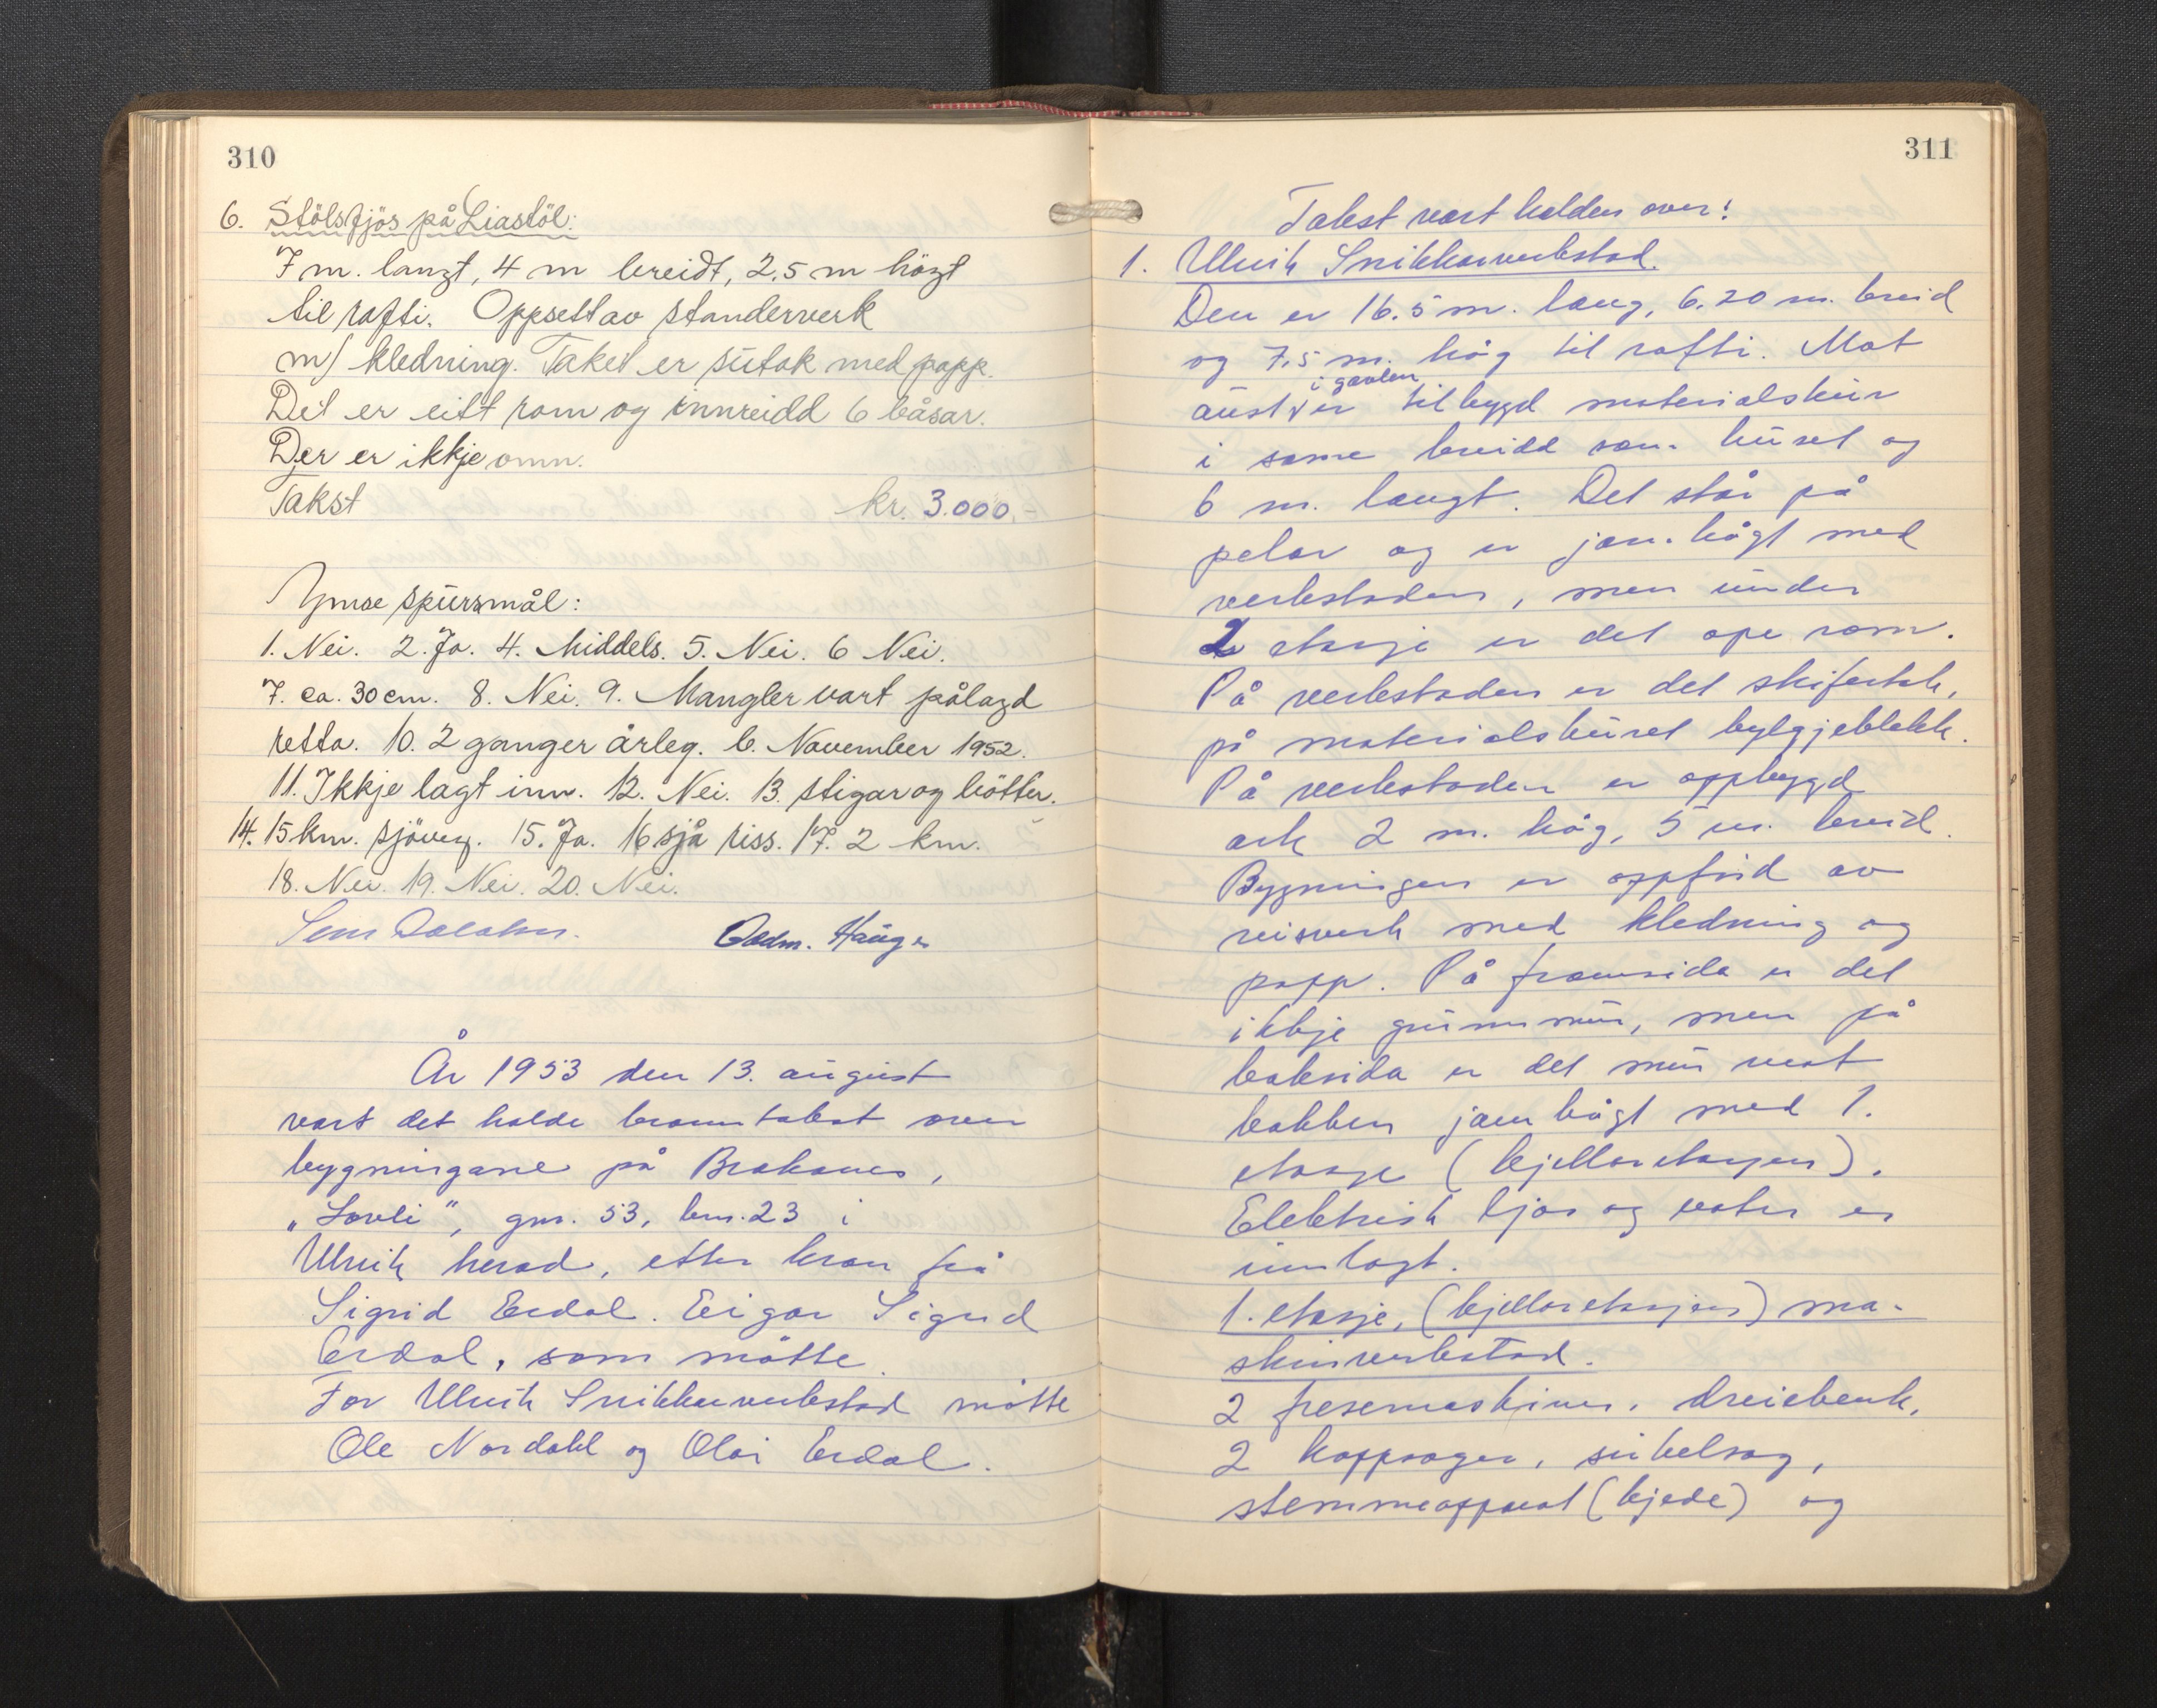 310
6. Stölsfjös på Liastöl:
7 m. langt, 4 m breidt, 2,5 m högt
til rafti. Oppsett av standerverk
m/ kledning. Taket er sutak med papp.
Det er eitt rom og innreidd 6 båsar.
Der er ikkje omn.
Takst kr. 3.000,-
Ymse spursmål:
1. Nei. 2. Ja. 4. Middels. 5. Nei. 6 Nei.
7. ca. 30 cm. 8. Nei. 9. Mangler vart pålagd
retta. 10. 2 ganger årleg. b. November 1952.
11. Ikkje lagt inn. 12. Nei. 13. stigar og bötter.
14. 15 km. sjöveg. 15. Ja. 16 sjå riss. 17. 2 km.
18. Nei. 19. Nei. 20. Nei.
Godm. Hauge
År 1953 den 13. august
vart det halde branntakst over
bygningane på Brakanes,
„Lovli", gnr. 53, bnr. 23 i
Ulvik herad, etter krav frå
Sigrid Erdal. Eigar Sigrid
Erdal, som møtte.
For Ulvik Snikkarverkstad møtte
Ole Nordahl og Olai Erdal.
311
Takst vart halden over:
1. Ulvik Snikkarverkstad.
Den er 16.5 m. lang, 6.20 m. breid
og 7,5 m. håg til rafti. Mot
i gavlen
aust er tilbygd materialskur
i same breidd som huset og
6 m. langt. Det står på
pelar og er jam-högt med
verkstaden, men under
2 etasje er det ope rom.
På verkstaden er det skifertak,
på materialskuret bylgjeblekk.
På verkstaden er oppbygd
ark 2 m. håg, 5 m. breid.
Bygningen er oppförd av
reisverk med kledning og
papp. På framsida er det
ikkje grunnmur, men på
baksida er det mur mot
bakken jamhøgt med 1.
etasje (kjellaretasjen).
Elektrisk ljos og vatn er
innlagt.
1. etasje, (kjellaretasjen) ma-
skinverkstad.
2 fresemaskiner, dreiebenk,
2 kappsager, sirkelsag,
stemmeapparat (kjede) og